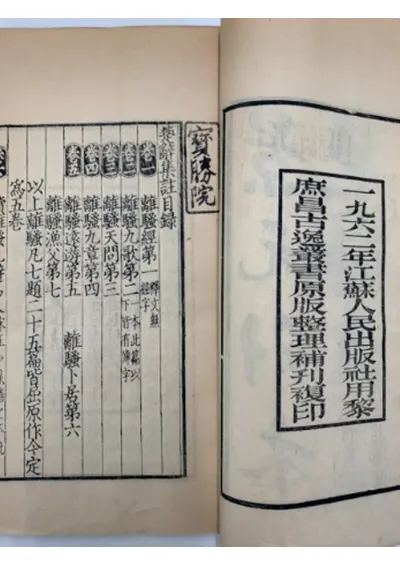 一九六二年江蘇人民出版社用黎
庶昌古逸叢書原版整理補刊複印
寶勝院
楚辭集註目錄
卷一 離騷經第一 釋文無經字
卷二 離騷九歌第二 一本此篇以下皆有傳字
卷三 離騷天問第三
卷四 離騷九章第四
卷五 離騷遠遊第五 離騷卜居第六
離騷漁父第七
以上離騷凡七題二十五篇皆屈原作今定
為五卷